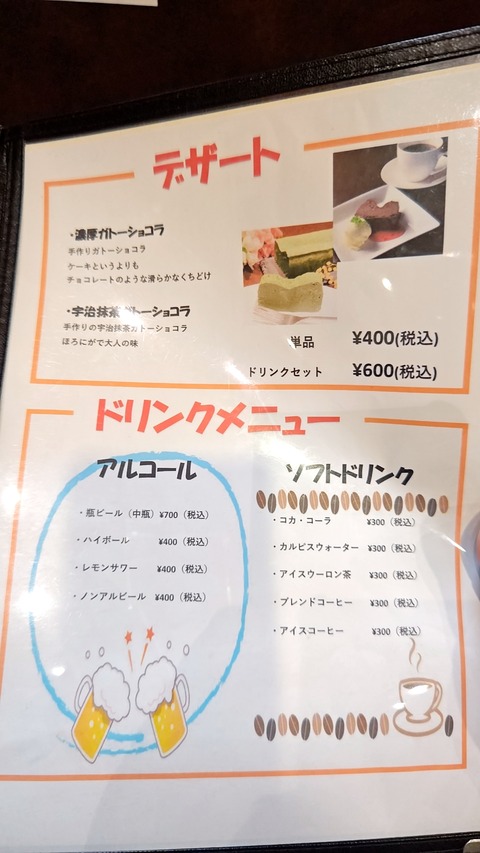 デザート
・濃厚ガトーショコラ
手作りガトーショコラ
ケーキというよりも
チョコレートのような滑らかなくちどけ
・宇治抹茶ガトーショコラ
手作りの宇治抹茶ガトーショコラ
ほろにがで大人の味
単品 ¥400(税込)
ドリンクセット ¥600(税込)
ドリンクメニュー
アルコール
・瓶ビール（中瓶）¥700（税込）
・ハイボール ¥400（税込）
・レモンサワー ¥400（税込）
・ノンアルビール ¥400（税込）
ソフトドリンク
・コカ・コーラ ¥300（税込）
・カルピスウォーター ¥300（税込）
・アイスウーロン茶 ¥300（税込）
・ブレンドコーヒー ¥300（税込）
・アイスコーヒー ¥300（税込）